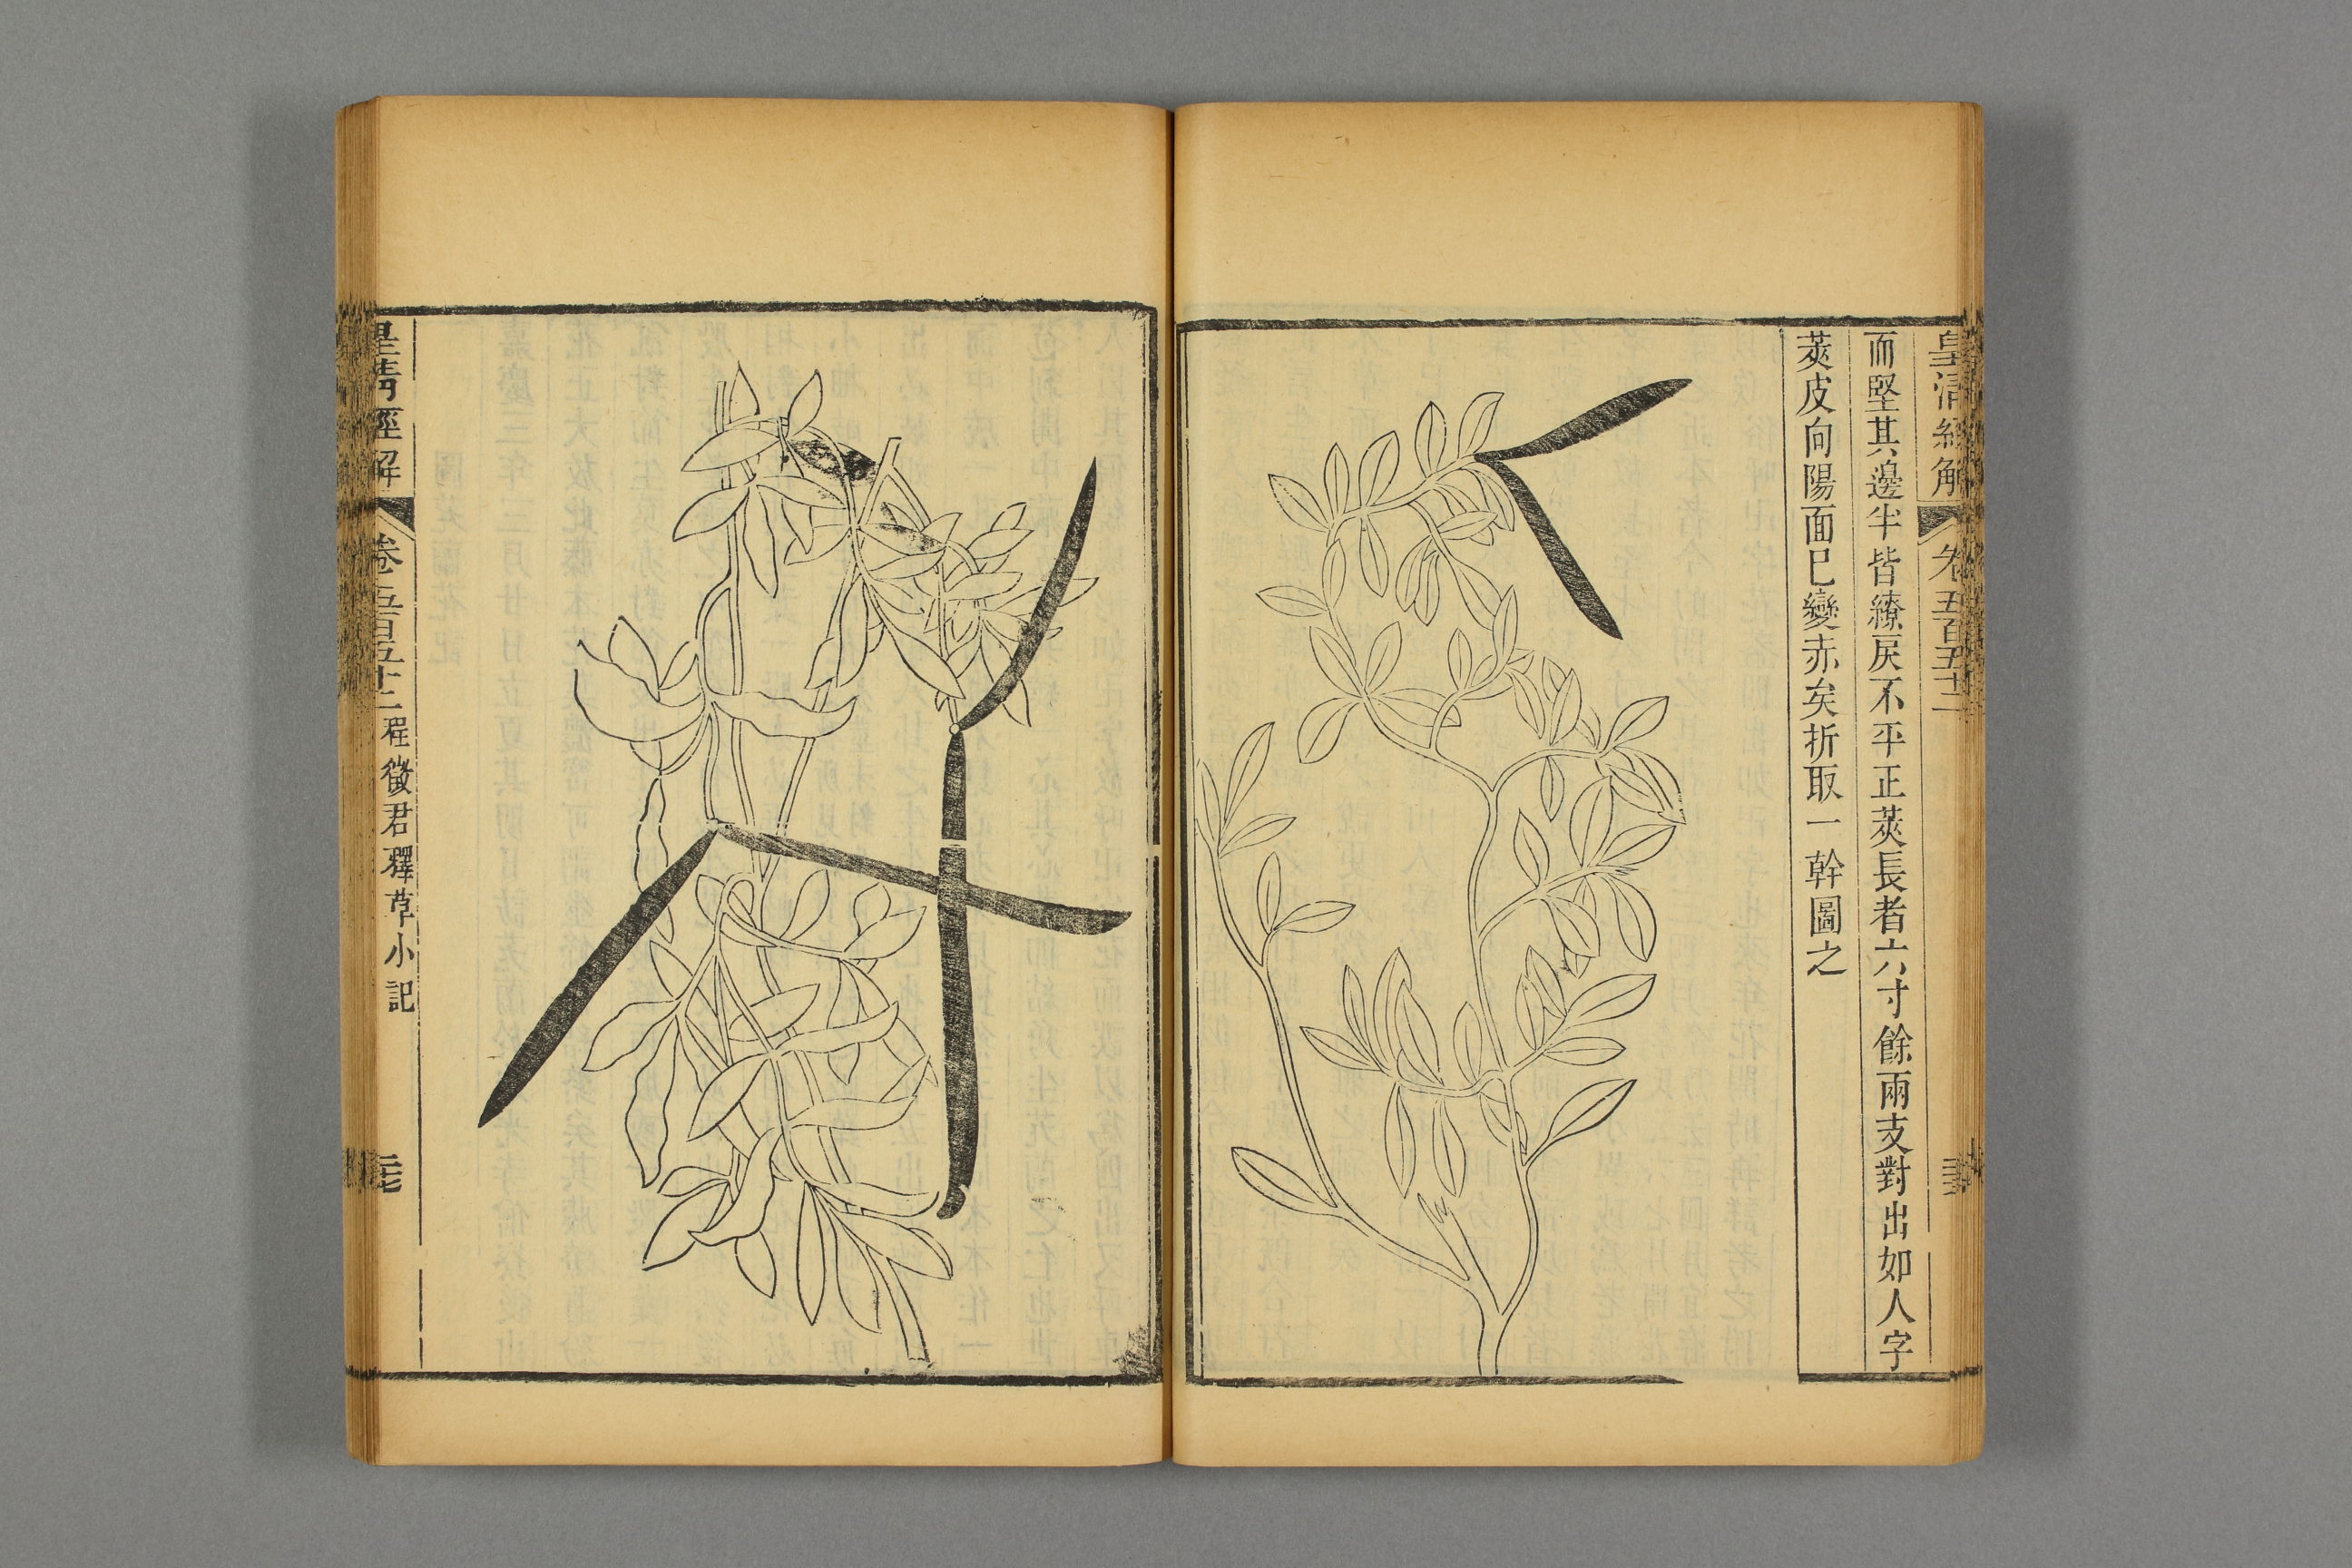 皇清經解
卷五百五十二
而堅其邊半皆繚戾不平正莢長者六寸餘兩支對出如人字
莢皮向陽面已變赤矣折取一幹圖之
皇清經解
卷五百五十二
程徵君釋草小記